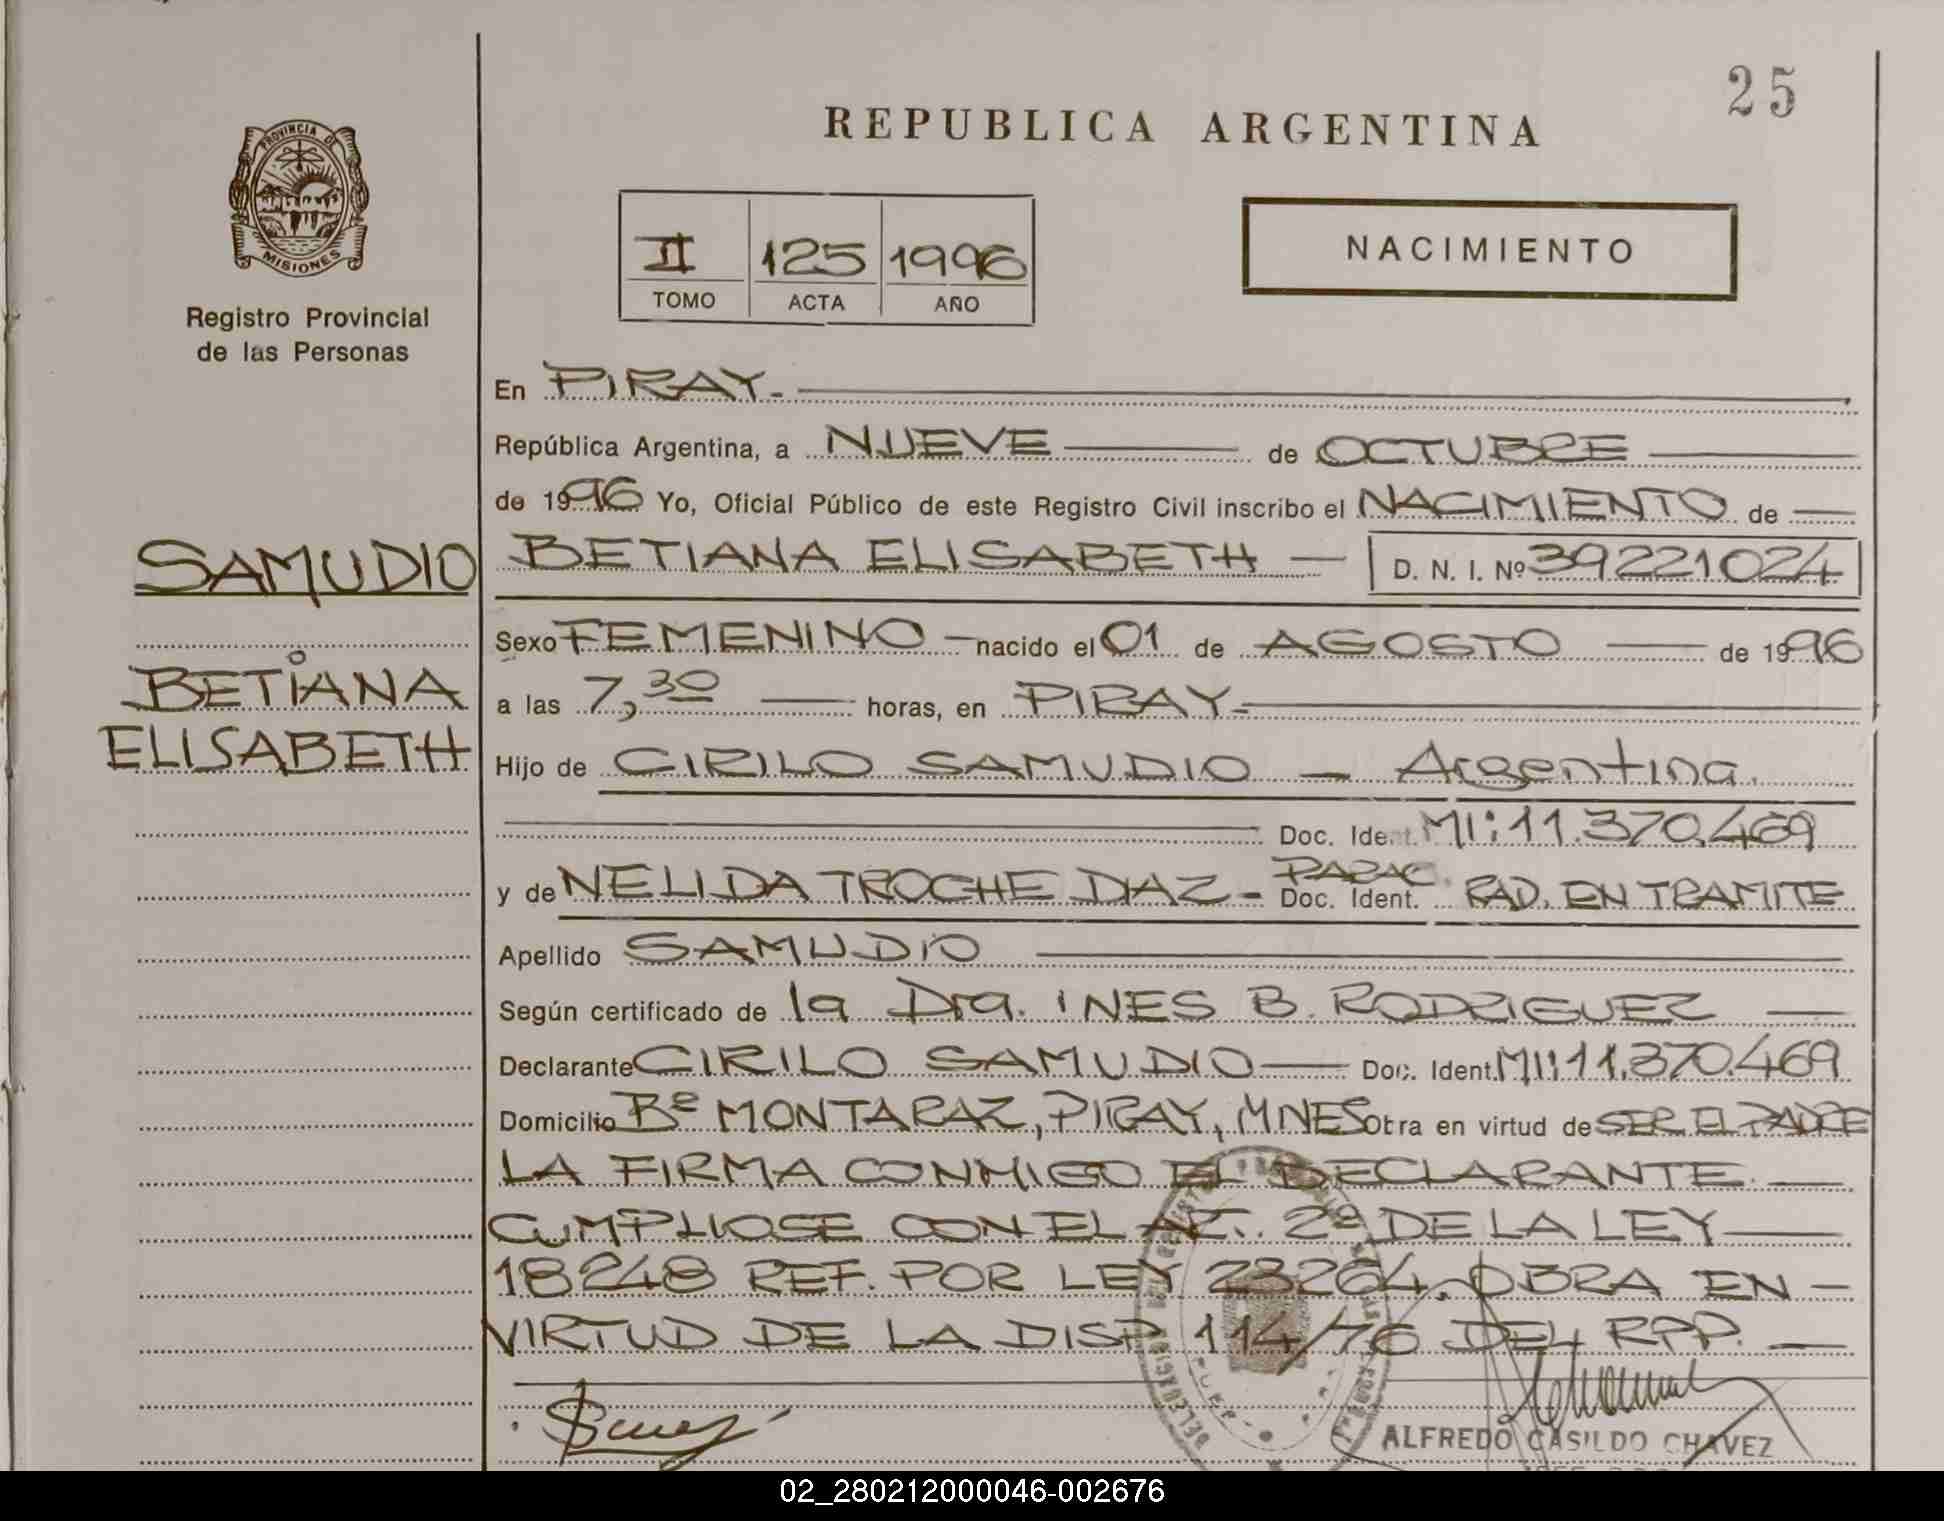 25
REPUBLICA ARGENTINA
PROVINCIA DE
MISIONES
Registro Provincial
de las Personas
II 125 1996
TOMO ACTA AÑO
NACIMIENTO
En PIRAY.
República Argentina, a NUEVE de OCTUBRE
de 1996 Yo, Oficial Público de este Registro Civil inscribo el NACIMIENTO de
SAMUDIO
BETIANA ELISABETH
BETIANA ELISABETH D. N. I. Nº 39221024
Sexo FEMENINO nacido el 01 de AGOSTO de 1996
a las 7,30 horas, en PIRAY.
Hijo de CIRILO SAMUDIO - Argentina.
Doc. Ident. MI: 11.370.469
y de NELIDA TROCHE DIAZ - PARAG. Doc. Ident. RAD. EN TRAMITE
Apellido SAMUDIO
Según certificado de la Dra. INES B. RODRIGUEZ
Declarante CIRILO SAMUDIO Doc. Ident. MI: 11.370.469
Domicilio Bº MONTARAZ, PIRAY, MNES Obra en virtud de SER EL PADRE
LA FIRMA CONMIGO EL DECLARANTE.
CUMPLIOSE CON EL ART. 2º DE LA LEY
18248 REF. POR LEY 23264. OBRA EN
VIRTUD DE LA DISP. 114/76 DEL RPP.
ALFREDO CASILDO CHAVEZ
02_280212000046-002676